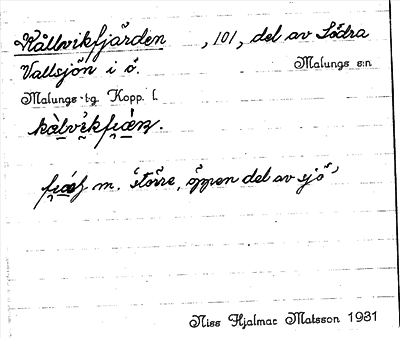 Kållvikfjärden , 101, del av Södra
Vallsjön i ö. Malungs s:n
Malungs tg. Kopp. l.
kàlvikfjän.
m. 'större, öppen del av sjö'
Niss Hjalmar Matsson 1931